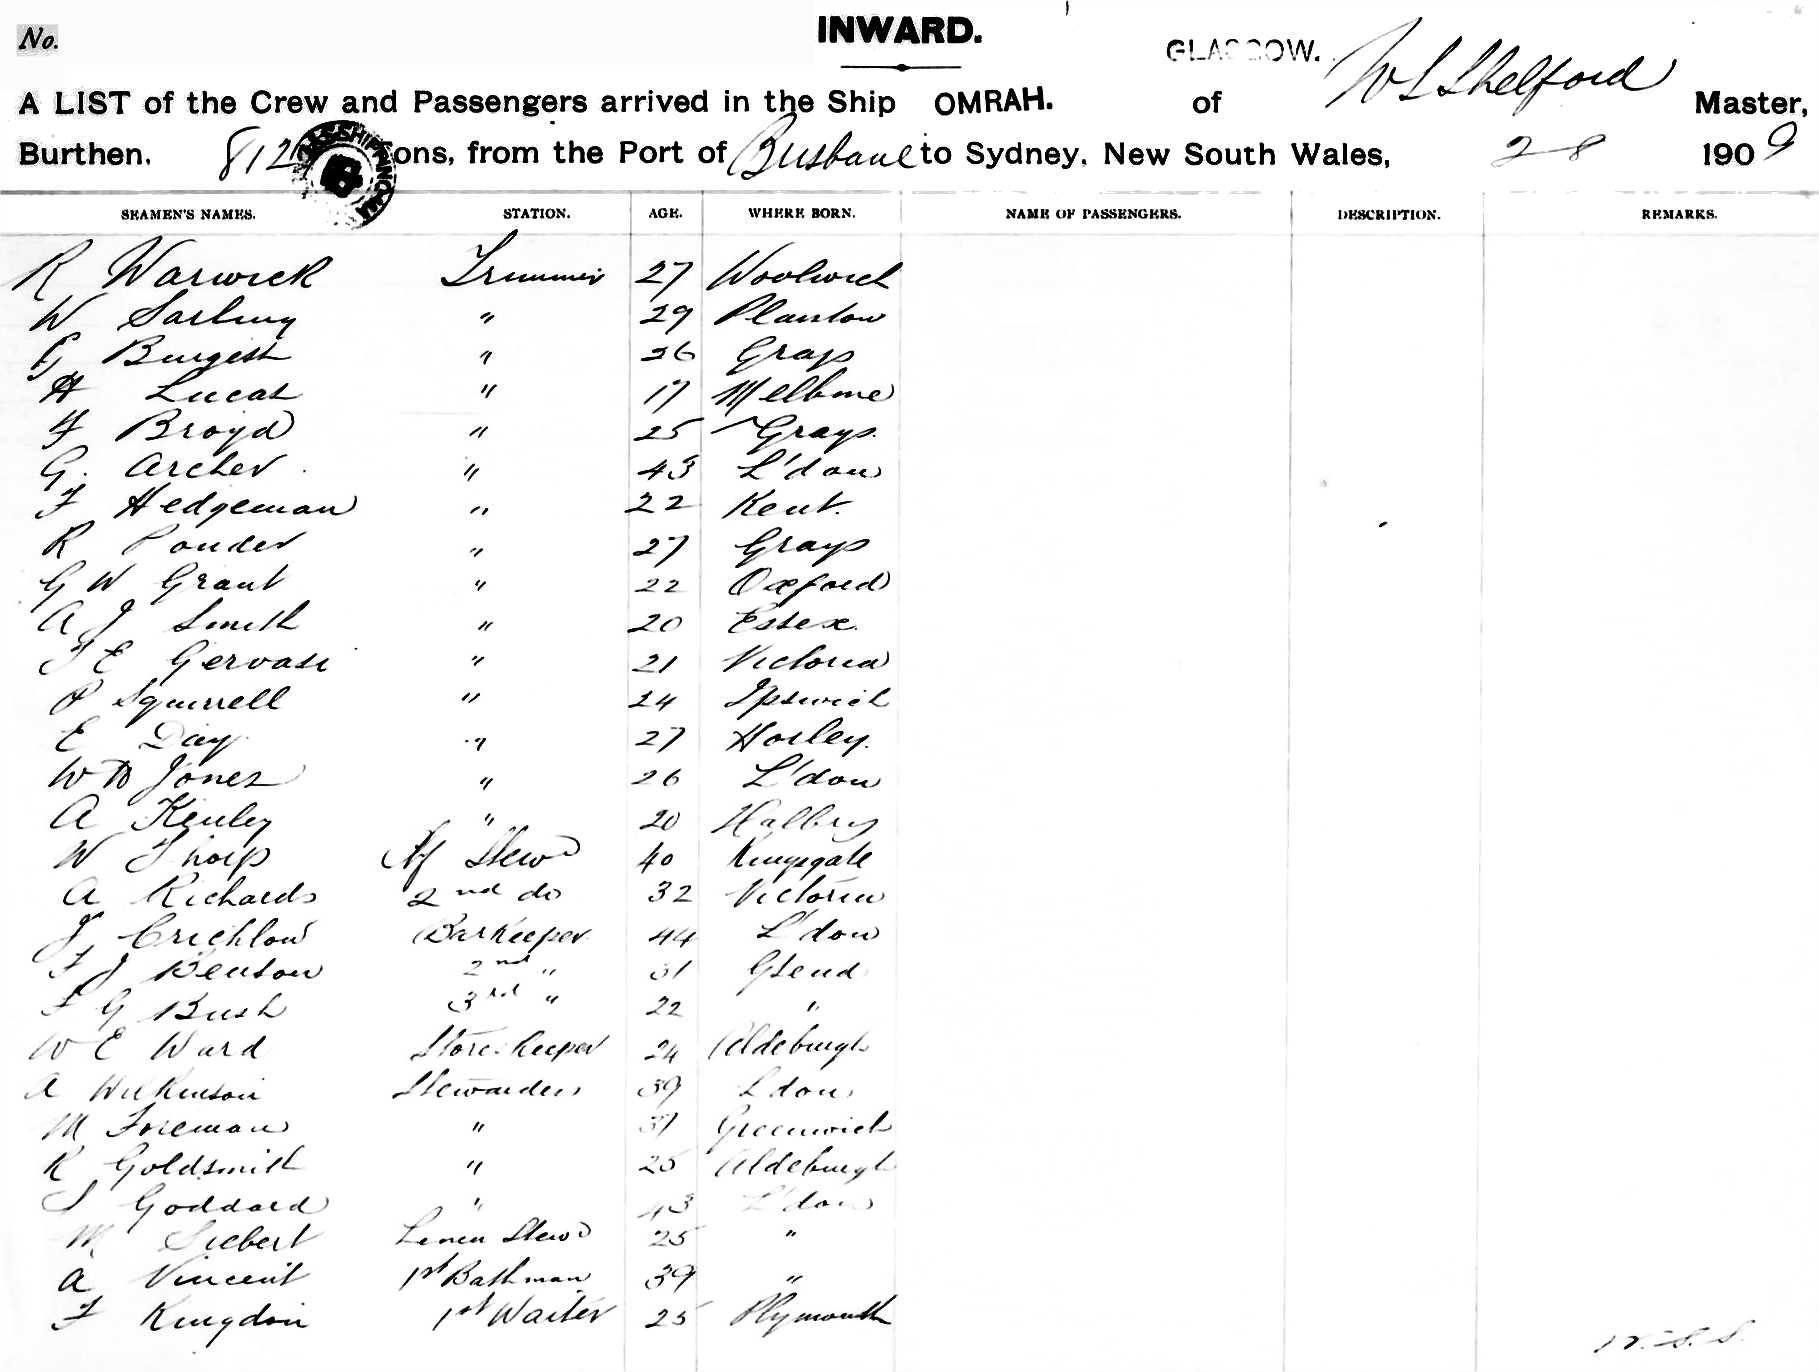 No. INWARD.
GLASGOW.
A LIST of the Crew and Passengers arrived in the Ship OMRAH. of W S Shelford Master,
Burthen, 812 ons, from the Port of Brisbane to Sydney, New South Wales, 28 1909
SEAMEN'S NAMES. STATION. AGE. WHERE BORN. NAME OF PASSENGERS. DESCRIPTION. REMARKS.
R Warwick Trimmer 27 Woolwich
W Sarling " 29 Plaistow
G Burgess " 26 Grays
H Lucas " 17 Melbrne
F Broyd " 25 Grays.
G. Archer " 43 L'don
F Hedgeman " 22 Kent.
R Ponder " 27 Grays
G W Grant " 22 Oxford
A J Smith " 20 Essex.
E Gervasi " 21 Victoria
P Squirrell " 24 Ipswich
E Day " 27 Horley.
W H Jones " 26 L'don
A Kenley " 20
W Thorp Stewd 40 Kingsgate
A Richards 2nd do 32 Victoria
J Crichlow Barkeeper 44 L'don
F J Benson 2nd " 31 Gsend
F G Bush 3rd " 22 "
W E Ward Storekeeper 24 Aldeburgh
A Wilkinson Stewardess 39 L'don
M Foreman " 37 Greenwich
R Goldsmith " 25 Aldeburgh
S Goddard " 43 L'don
M Siebert Linen Stewd 25 "
A Vincent 1st Bathman 39 "
F Kingdon 1st Waiter 25 Plymouth